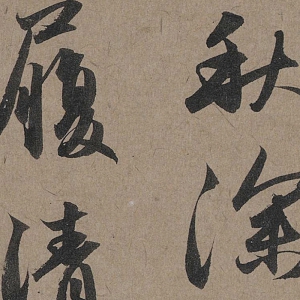 秋深
履清